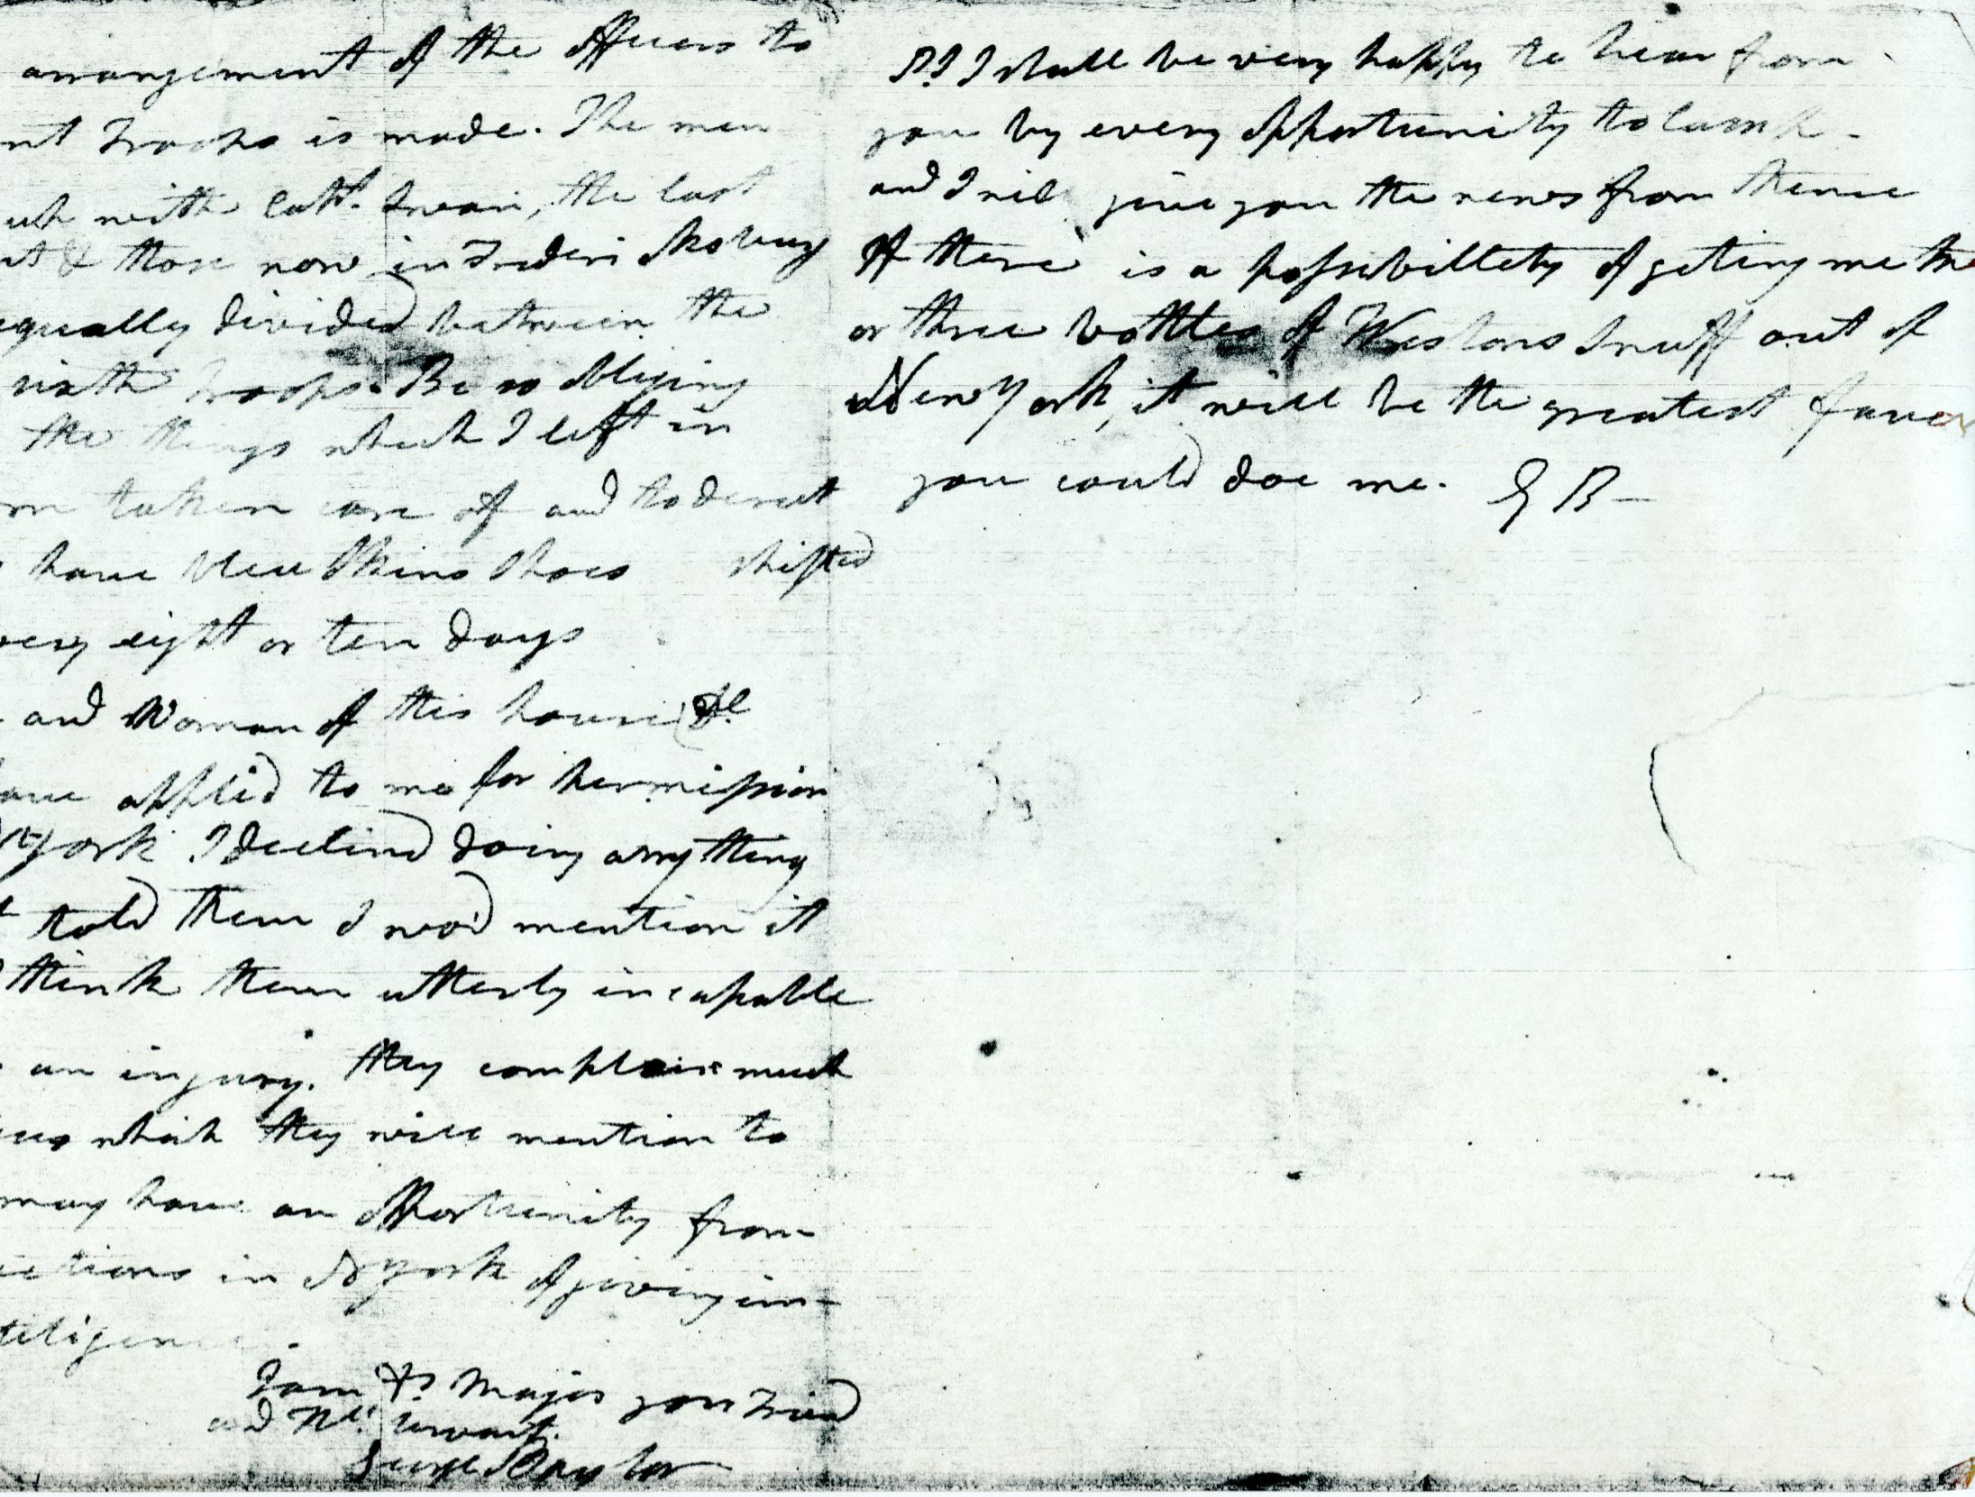 arrangement of the officers to
nt Troops is made. The men
with Capt. Swan, the last
& those now in Fredericksburg
equally divided between the
sixth troops. Be so obliging
the things which I left in
taken care of and to direct
have blew Skins Shoes shifted
very eight or ten days
and Woman of this house
applied to me for permission
York I declined doing any thing
told them I wod mention it
think them utterly incapable
an injury. They complain much
which they will mention to
may have an opportunity from
ections in N York of giving in-
teligence.
I am Dr. Major your Friend
and Hl. Servant.
George Baylor
P.S I shall be very happy to hear from
you by every opportunity to Camp -
and I will give you the news from thence
If there is a possebillety of geting me two
or three bottles of Westons Snuff out of
New York, it will be the greatest favor
you could doe me. G B-